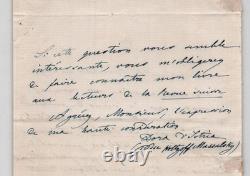 Si cette question vous semble
intéressante, vous m'obligerez
de faire connaître mon livre
aux lecteurs de la Revue suisse
Agréez, Monsieur, l'expression
de ma haute considération
Dora d'Istria